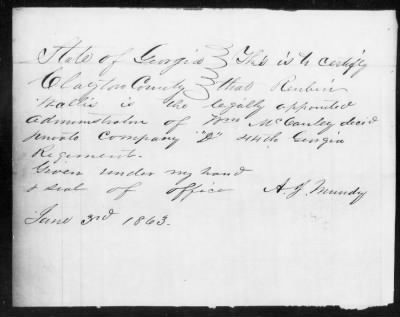 State of Georgia } This is to certify
Clayton County } that Reubin
Wallis is the legally appointed
administrator of Wm McCauley decd
private Company "D" 44th Georgia
Regiment.
Given under my hand
& seal of office A. J. Mundy
June 3rd 1863.